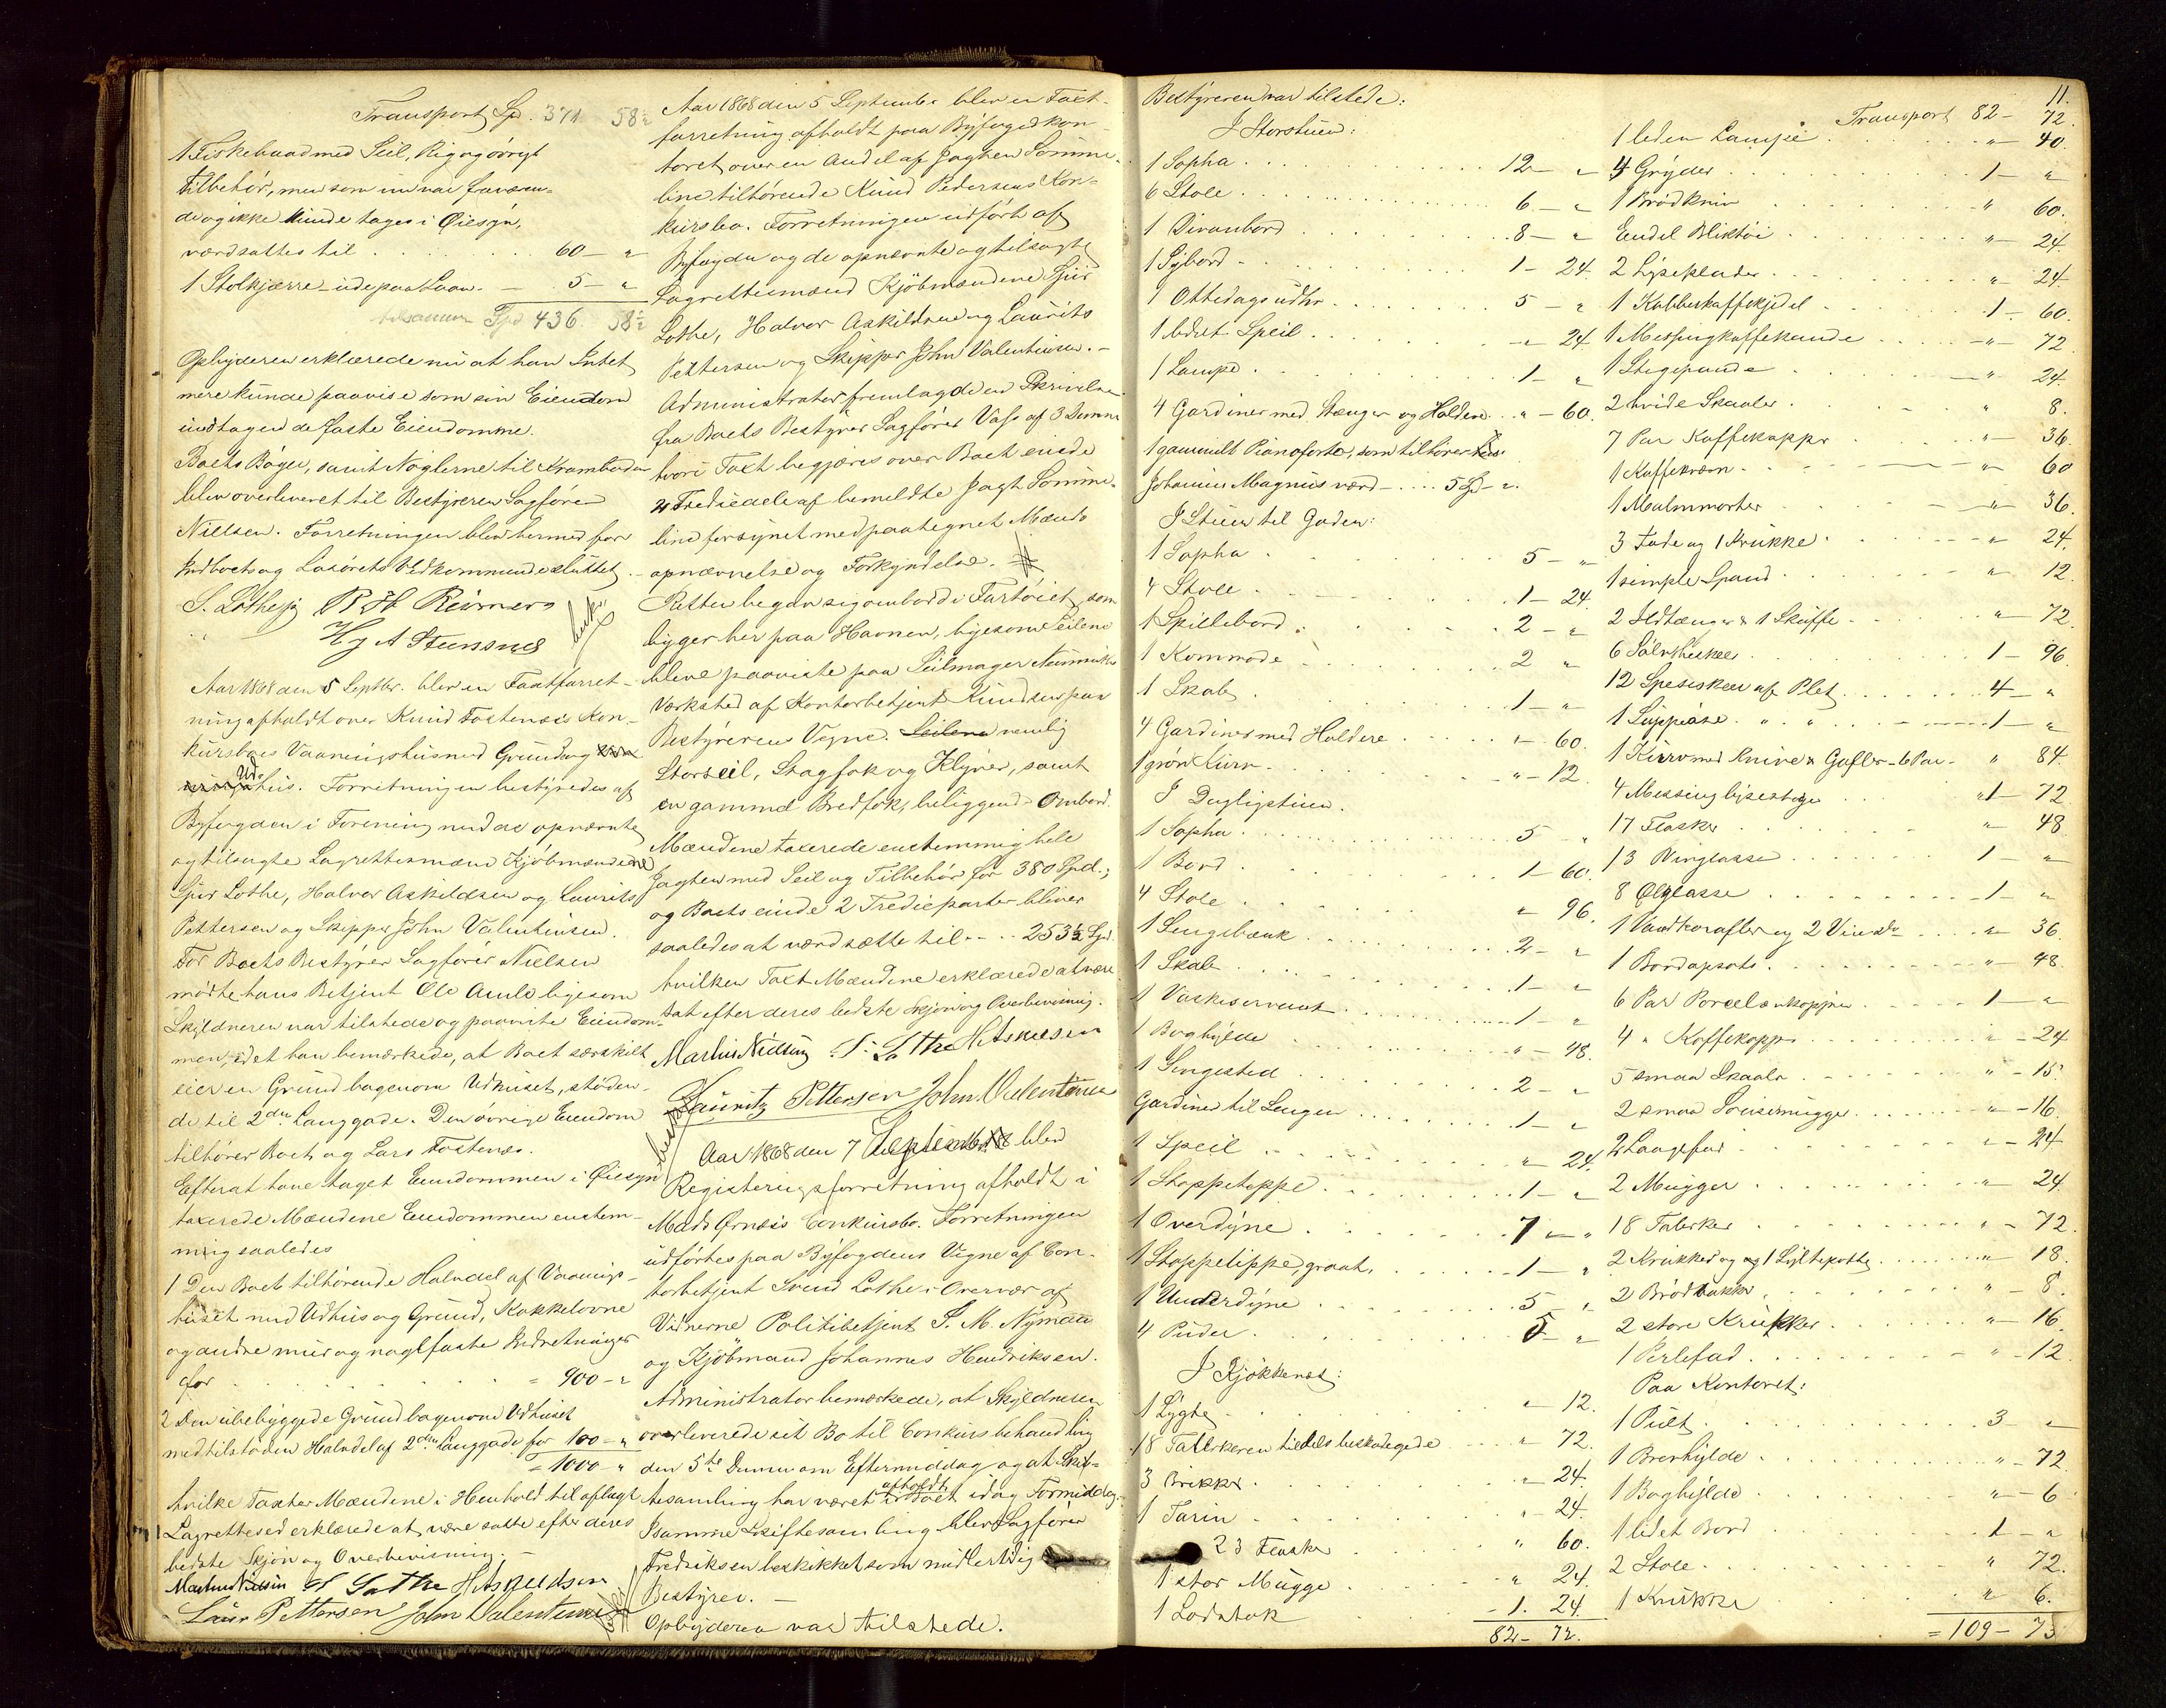 Transport Spd. 371 58½
1 Fiskebaad med Seil, Rig og øvrigt
Tilbehør, men som nu var fraværen-
de og ikke kunde tages i Øiesyn,
værdsattes til . . . . . 60 – "
1 Stolkjærre – ude paa Laan. – 5 – "
tilsammen Spd 436. 58½
Opbyderen erklærede nu at han Intet
mere kunde paavise som sin Eiendom
undtagen de faste Eiendomme.
Boets Bøger, samt Nøglerne til Kramboden
blev overleveret til Bestyreren Sagfører
Nielsen. Forretningen blev hermed for
Indboets og Løsørets Vedkommende sluttet. –
S. Lothe R H Reimers
H A Stensnes
Aar 1868 den 5 Septbr. blev en Taxtforret-
ning afholdt over Knud Tostensens Kon-
kursboes Vaaningshus med Grund og
Udhus. Forretningen bestyredes af
Byfogden i Forening med de opnævnte
og tilsagte Lagrettesmænd Kjøbmændene
Sjur Lothe, Halvor Askildsen og Laurits
Pettersen og Skipper John Valentinsen.
For Boets Bestyrer Sagfører Nielsen
mødte hans Betjent Ole Amle ligesom
Skyldneren var tilstede og paaviste Eiendom-
men, idet han bemærkede, at Boet særskilt
eier en Grund bagenom Udhuset, støden-
de til 2den Langgade. Den øvrige Eiendom
tilhører Boet og Lars Tostensen.
Efterat have taget Eiendommen i Øiesyn
taxerede Mændene Eiendommen enstem-
mig saaledes
1 Den Boet tilhørende Halvdel af Vaanings-
huset med Udhus og Grund, Kakkelovne
og andre mur og naglfaste Indretninger
for . . . . . = 900 – "
2 Den ubebyggede Grund bagenom Udhuset
med tilstøden Halvdel af 2den Langgade for 100 – "
= 1000 – "
hvilke Taxter Mændene i Henhold til aflagt
Lagretteseed erklærede at være satte efter deres
bedste Skjøn og Overbevisning. –
Martin Nielsen S Lothe H Askildsen
Laur Pettersen John Valentinsen
Aar 1868 den 5 September blev en Taxt-
forretning afholdt paa Byfogedkon-
toret over en Andel af Jagten Domine-
line tilhørende Knud Pedersens Kon-
kursbo. Forretningen udført af
Byfogden og de opnævnte og tilsagte
Lagrettesmænd Kjøbmændene Sjur
Lothe, Halvor Askildsen og Laurits
Pettersen og Skipper John Valentinsen. –
Administrator fremlagde en Skrivelse
fra Boets Bestyrer Sagfører Vass af 3 Dennes
hvori Taxt begjæres over Boet eiede
2 Trediedele af bemeldte Jagt
forsynet med paategnet Mænds
opnævnelse og Forkyndelse. #
Retten begav sig ombord i Fartøiet, som
ligger her paa Havnen, ligesom Seilene
bleve paaviste paa Seilmager
Værksted af Kontorbetjent Knudsen paa
Bestyrerens Vegne. Seilene nemlig
Storseil, Stagfok og Klyver, samt
en gammel Bredfok, beliggende Ombord.
Mændene taxerede enstemmig hele
Jagten med Seil og Tilbehør for 380 Spd.;
og Boets eiende 2 Tredieparter bliver
saaledes at værdsætte til – . . 253⅓ Spd.
hvilken Taxt Mændene erklærede at være
sat efter deres bedste Skjøn og Overbevisning.
Martin Nielsen S. Lothe H Askildsen
Lauritz Pettersen John Valentinsen
Aar 1868 den 7 September blev
Registeringsforretning afholdt i
Mads Ørnæs's Conkursbo. Forretningen
udførtes paa Byfogdens Vegne af Con-
torbetjent Svend Lothe i Overvær af
Vidnerne Politibetjent S. M. Nyman
og Kjøbmand Johannes Hendriksen.
Administrator bemærkede, at Skyldneren
overleverede sit Bo til Conkursbehandling
den 5te Dennes om Eftermiddag og at Skif-
tesamling har været afholdt i Boet idag Formiddag.
I samme Skiftesamling blev Sagfører
Fredriksen beskikket som midlertidig
Bestyrer. –
Opbyderen var tilstede.
11.
Bestyreren var tilstede:
I Storstuen:
1 Sopha . . . 12 – "
6 Stole . . . 6 – "
1 Divanbord . . . 8 – "
1 Sybord . . . 1 – 24.
1 Ottedagsudhr . . . 5 – "
1 lidet Speil . . . – " 24
1 Lampe . . . 1 – "
4 Gardiner med Stænger og Holdere . . " – 60.
1 gammelt Pianoforte, som tilhører
Johannes Magnus værd – . . . 5 Spd – ".
I Stuen til Gaden:
1 Sopha . . . 5 – "
4 Stole . . . 1 – 24.
1 Spillebord . . . 2 – "
1 Kommode . . . 2 "
1 Skab . . . 1 – "
4 Gardiner med Holdere . . . " – 60.
1 grøn Kurv . . . " – 12.
I Dagligstuen.
1 Sopha . . . 5 – "
1 Bord . . . 1 – 60.
4 Stole . . . " 96.
1 Sengebænk . . . 2 – "
1 Skab . . . 1 – "
1 Vaskeservant . . . 1 – "
1 Boghylde . . . " – 48.
1 Sengested . . . 2 – "
Gardiner til Sengen . . . 1 – "
1 Speil . . . " 24.
1 Stoppeteppe . . . 1 – "
1 Overdyne . . . 7 – "
1 Stoppeteppe graat, . . . 1 – "
1 Underdyne . . . 5 – "
4 Puder . . . 5 – "
I Kjøkkenet:
1 Lygte . . . " 12.
18 Tallerkener tildels beskadigede . . . " 72.
3 Brikker . . . " 24.
1 Tarin . . . " 24.
23 Flasker . . . " 60.
1 stor Mugge . . . " 24.
1 Lodstok . . . – 1. 24.
82 – 72.
Transport 82 – 72.
1 liden Lampe . . . " – 40.
4 Gryder . . . 1 – "
1 Brødkniv . . . " 60.
Endel Bliktøi . . . " – 24.
2 Lyseplader . . . " 24.
1 Kobberkaffekjedel . . . 1 – 60.
1 Messingkaffekande . . . – " – 72.
1 Stegepande . . . – " 24.
2 hvide Skaaler . . . " 8.
7 Par Kaffekopper . . . " – 36.
1 Kaffekværn . . . – " 60
1 Malmmorter . . . – " – 36.
3 Fade og 1 Krukke . . . " 24.
1 simple Spand . . . " 12.
2 Ildtænger & 1 Skuffe . . . " – 72.
6 Sølvtheskeer . . . 1 – 96.
12 Spiseskeer af Plet . . . 4 – "
1 Suppeøse . " . " . . . 1 – "
1 Kurv med Knive & Gafler – 6 Par – " 84.
4 Messinglysestager . . . "1 – 72.
17 Flasker . . . " 48.
13 Vinglasse . . . 1 – "
8 Ølglasse . . . 1 – "
1 Vandkarafler og 2 Vin do . . . " 36.
1 Bordopsats . . . " – 48.
6 Par Porcelænkopper . . . 1 – "
4 " Kaffekopper . . . " – 24
5 smaa Skaaler . . . " – 15.
2 smaa Saisemugger . . . " – 16.
2 . . . " – 24
2 Mugger . . . " – 24.
18 Talerker . . . " – 72.
2 Krukker og 1 Syltepotte . . . " 18.
2 Brødbakker . . . " – 8.
2 store Krukker . . . " – 16.
1 Perlefad . . . " – 12.
Paa Kontoret:
1 Pult . . . 3 – "
1 Brevhylde . . . " – 72.
1 Boghylde . . . " – 6
1 lidet Bord . . . 1 – "
2 Stole . . . " 72.
1 Krukke . . . " 6.
= 109 – 73